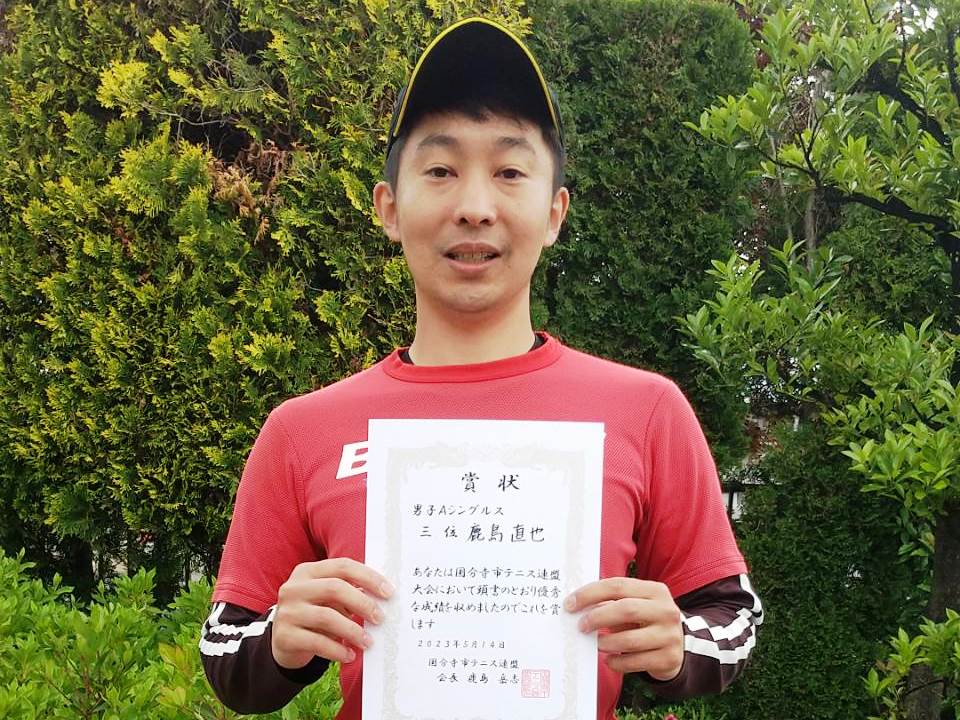 賞状
男子Aシングルス
三位 鹿島直也
あなたは国分寺市テニス連盟
大会において頭書のとおり優秀
な成績を収めましたのでこれを賞
します
2023年5月14日
国分寺市テニス連盟
会長